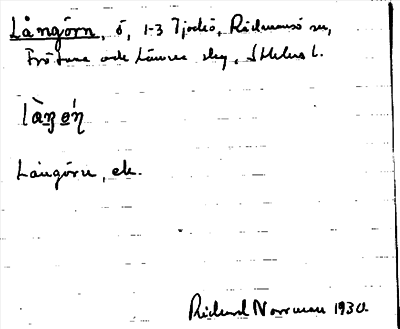 Långörn, ö, 1-3 Tjockö, Rådmansö sn,
Frötuna och Länna skg, Sthlms l.
làŋǝń
Långörn, ek.
Rickard Norrman 1930.